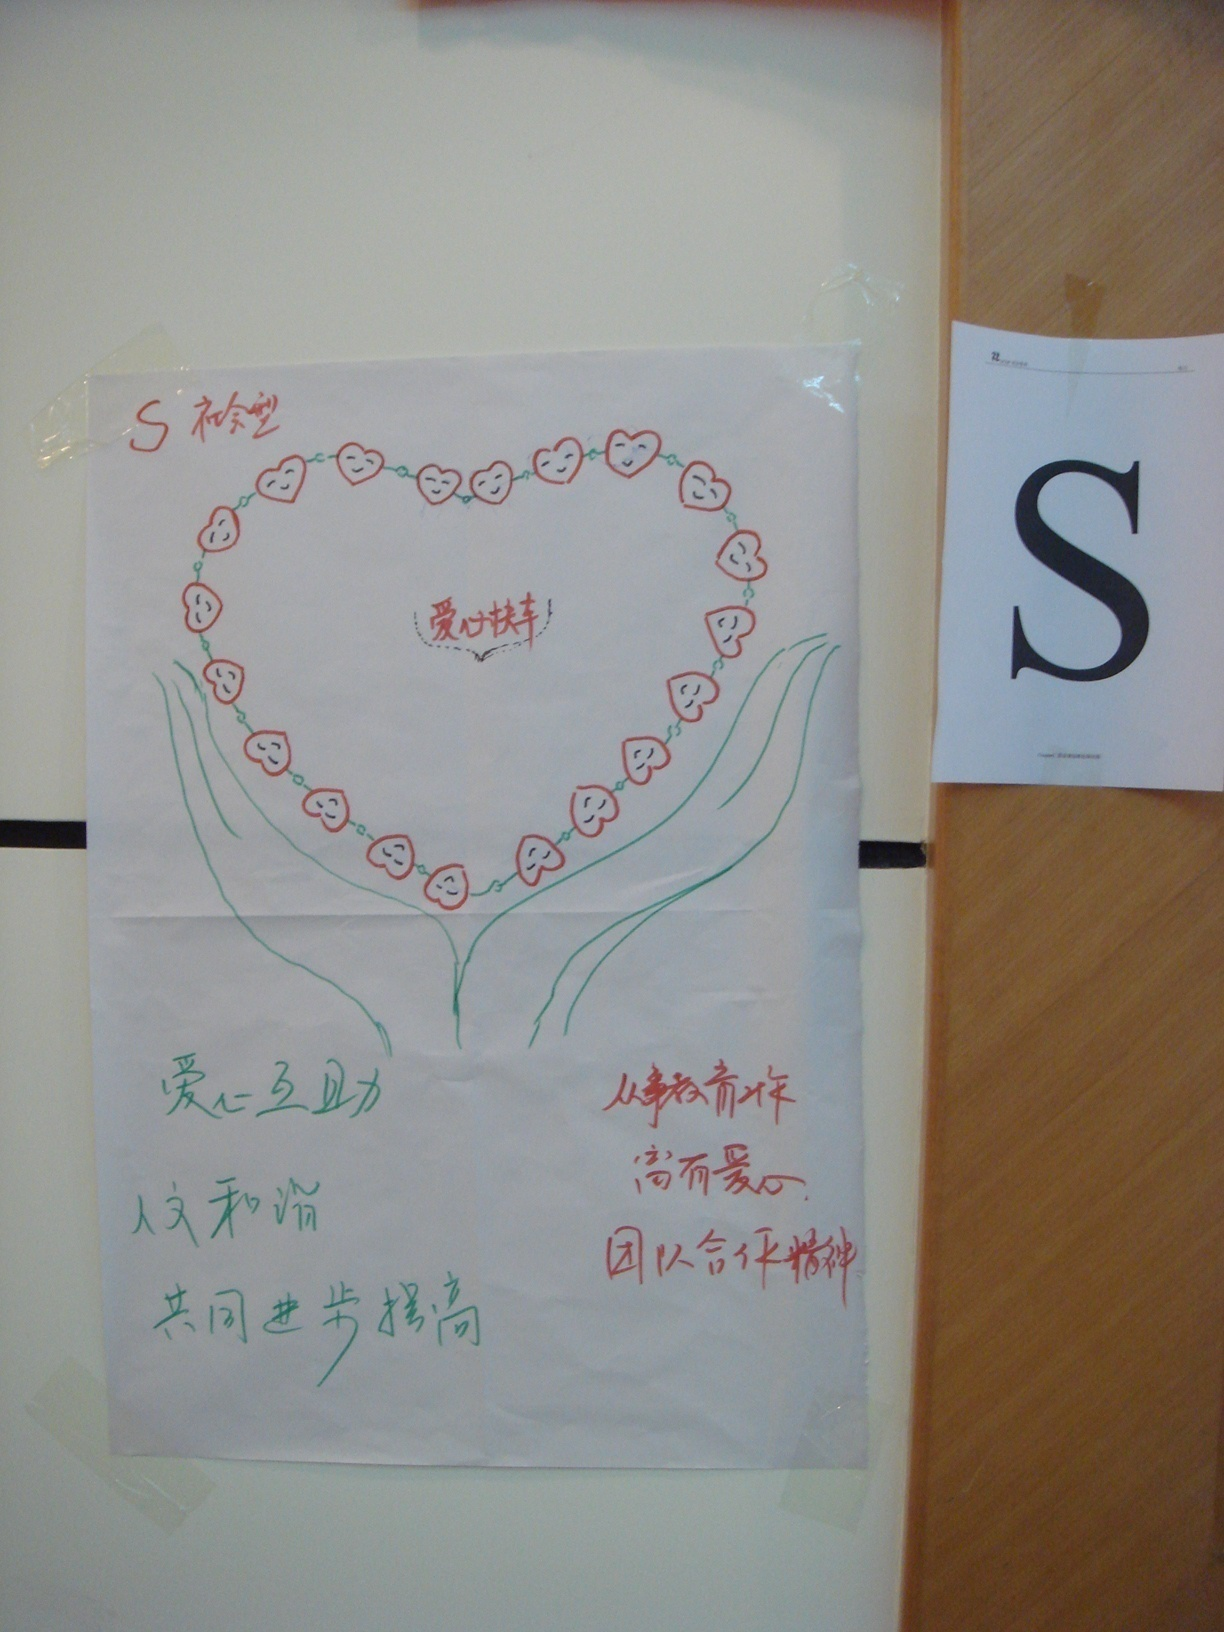 S 社会型
爱心快车
爱心互助
人文和谐
共同进步提高
从事教育工作
富有爱心
团队合作精神
S